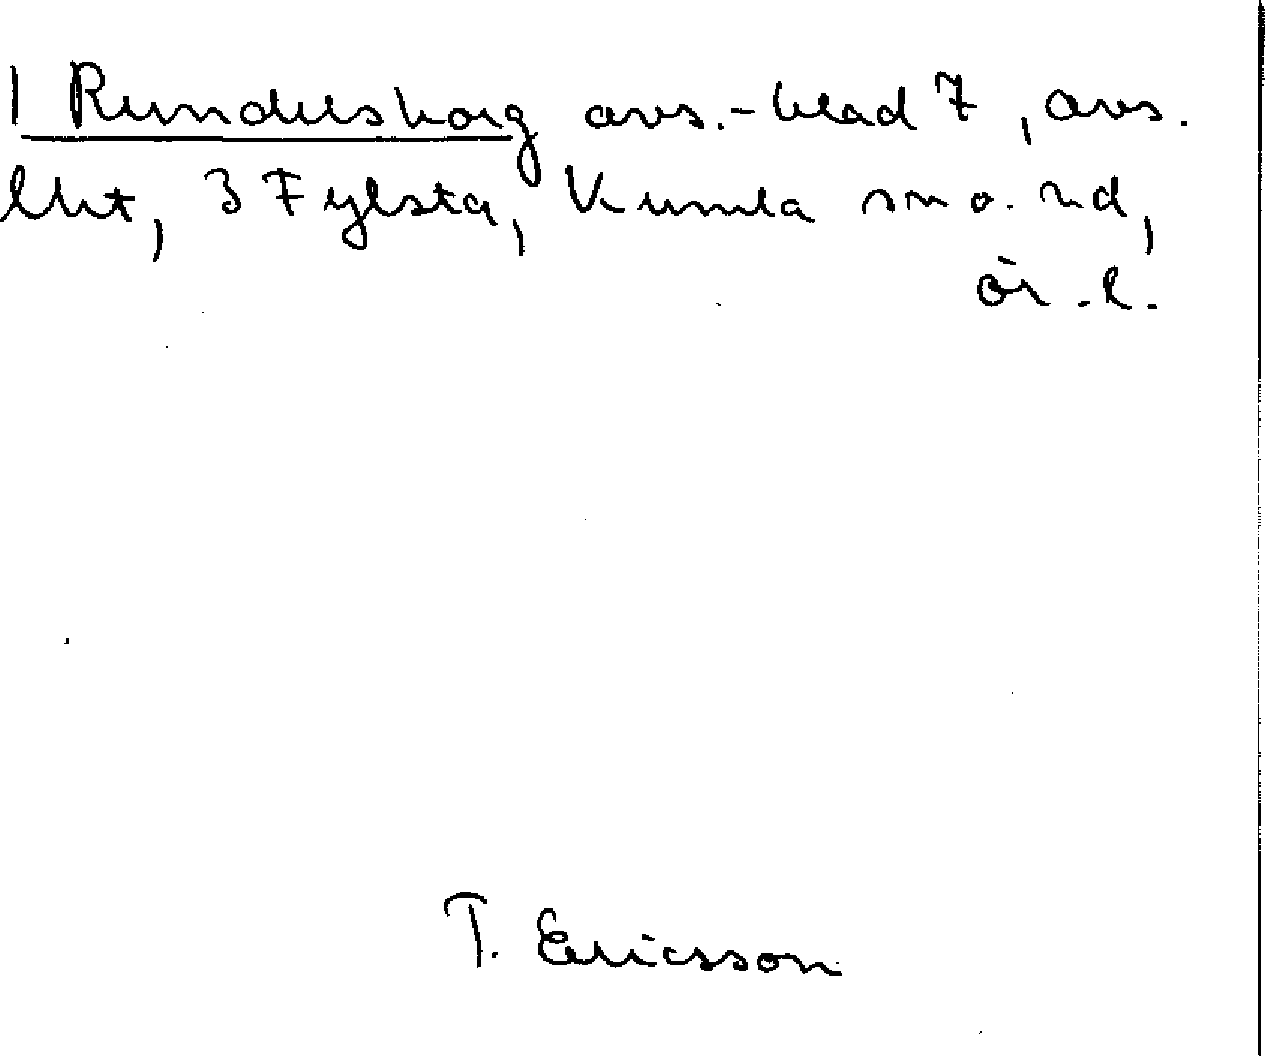 1 Rundelsborg avs.-blad 7, avs.
lht, 3 Fylsta, Kumla sn o. hd,
ör. l.
T. Ericsson